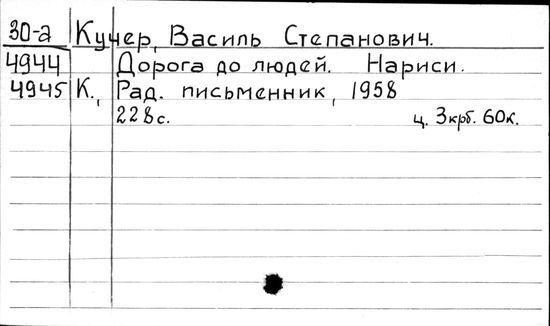 30-а Кучер, Василь Степанович.
4944 Дорога до людей. Нариси.
4945 К., Рад. письменник, 1958
228с. ц. 3крб. 60к.